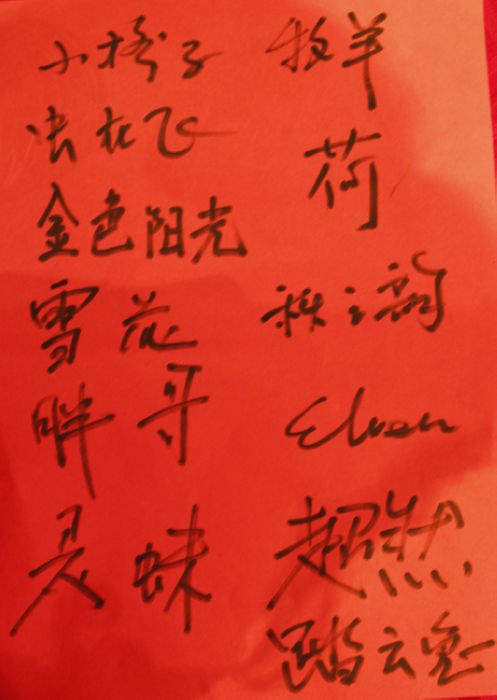 小橘子
牧羊
虫衣飞
荷
金色阳光
雪花
秋之韵
胖哥
灵妹
超然
踏云兔